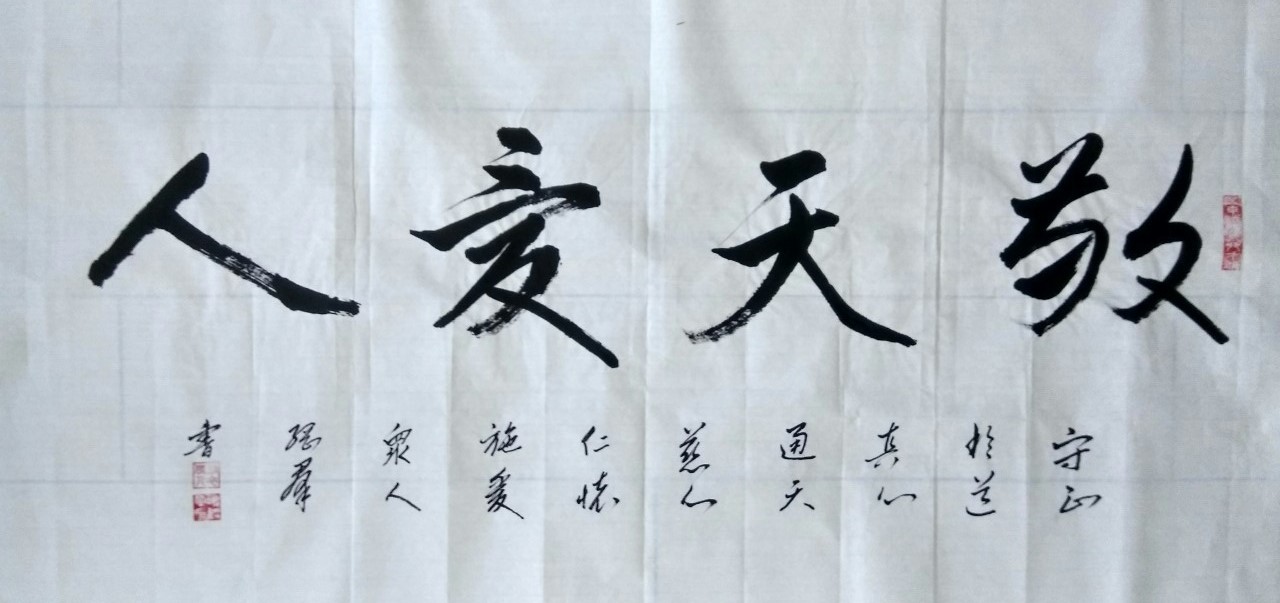 敬天爱人
守正
於道
真心
通天
慈心
仁懷
施爱
眾人
羣
書